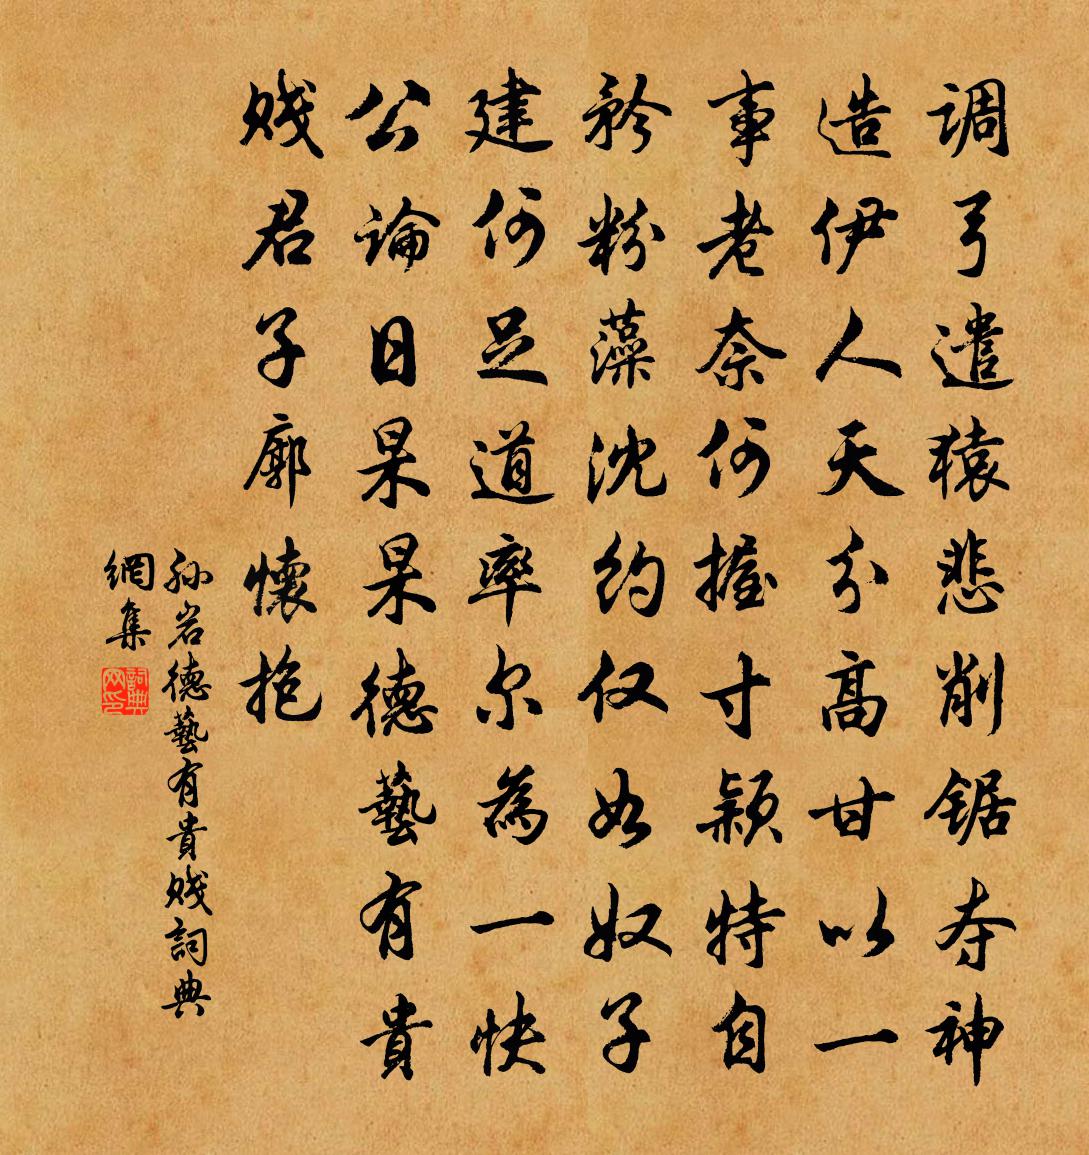 调弓遣猿悲削锯夺神
造伊人天分高甘以一
事老奈何握寸颖特自
矜粉藻沈约仅如奴子
建何足道率尔為一快
公論日杲杲德藝有貴
贱君子廓懷抱
孙岩德藝有貴贱詞典
網集
詞典
网印